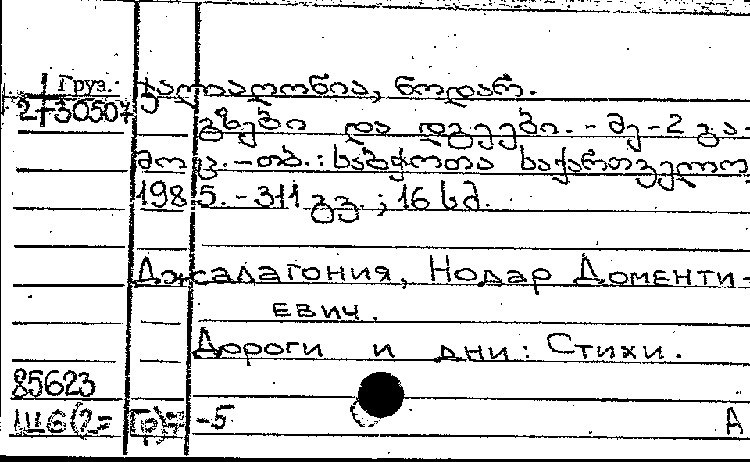 Груз. ჯალაღონია, ნოდარ.
2-30507
გზები და დღეები. - მე-2 გა-
მოც. - თბ. : საბჭოთა საქართველო,
1985. - 311 გვ. ; 16 სმ.
Джалагония, Нодар Доменти-
евич.
Дороги и дни : Стихи.
85623
Ш6(2=Гр)7 -5 А